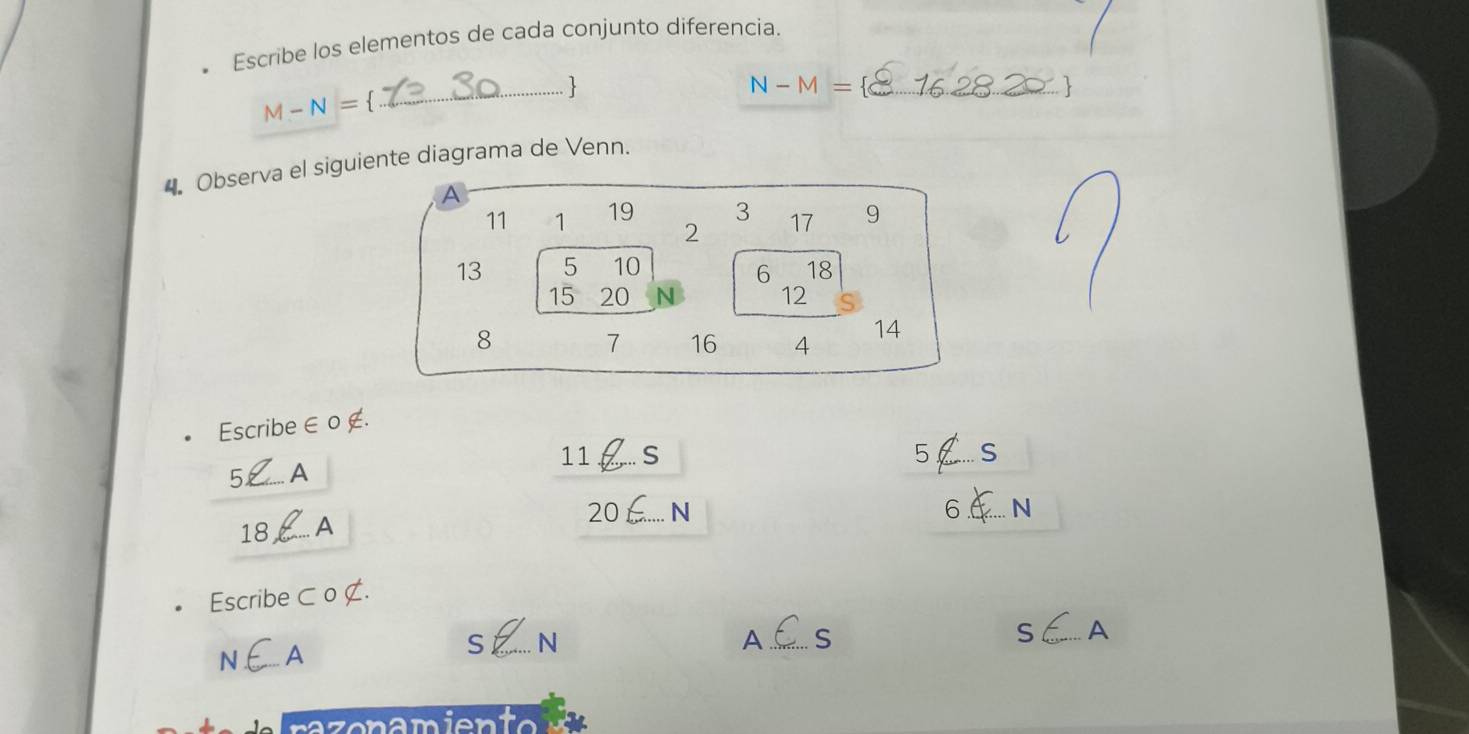 • Escribe los elementos de cada conjunto diferencia.
M - N = { 30 } N - M = { 8 16 28 20 }
4. Observa el siguiente diagrama de Venn.
A
11 1 19 2 3 17 9
13 5 10 6 18
15 20 N 12 S
8 7 16 4 14
• Escribe ∈ o ∉.
5 ∉ A 11 ∉ S 5 ∉ S
18 ∉ A 20 ∈ N 6 ∉ N
• Escribe ⊂ o ⊄.
N ∈ A S ∉ N A ∈ S S ∈ A
de razonamiento